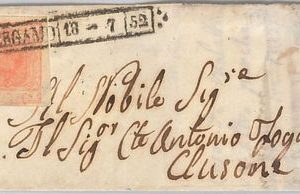 ERGAMO 18 - 7 52
Al Nobile Sigre
Il Sigor Cte Antonio Foga
Clusone